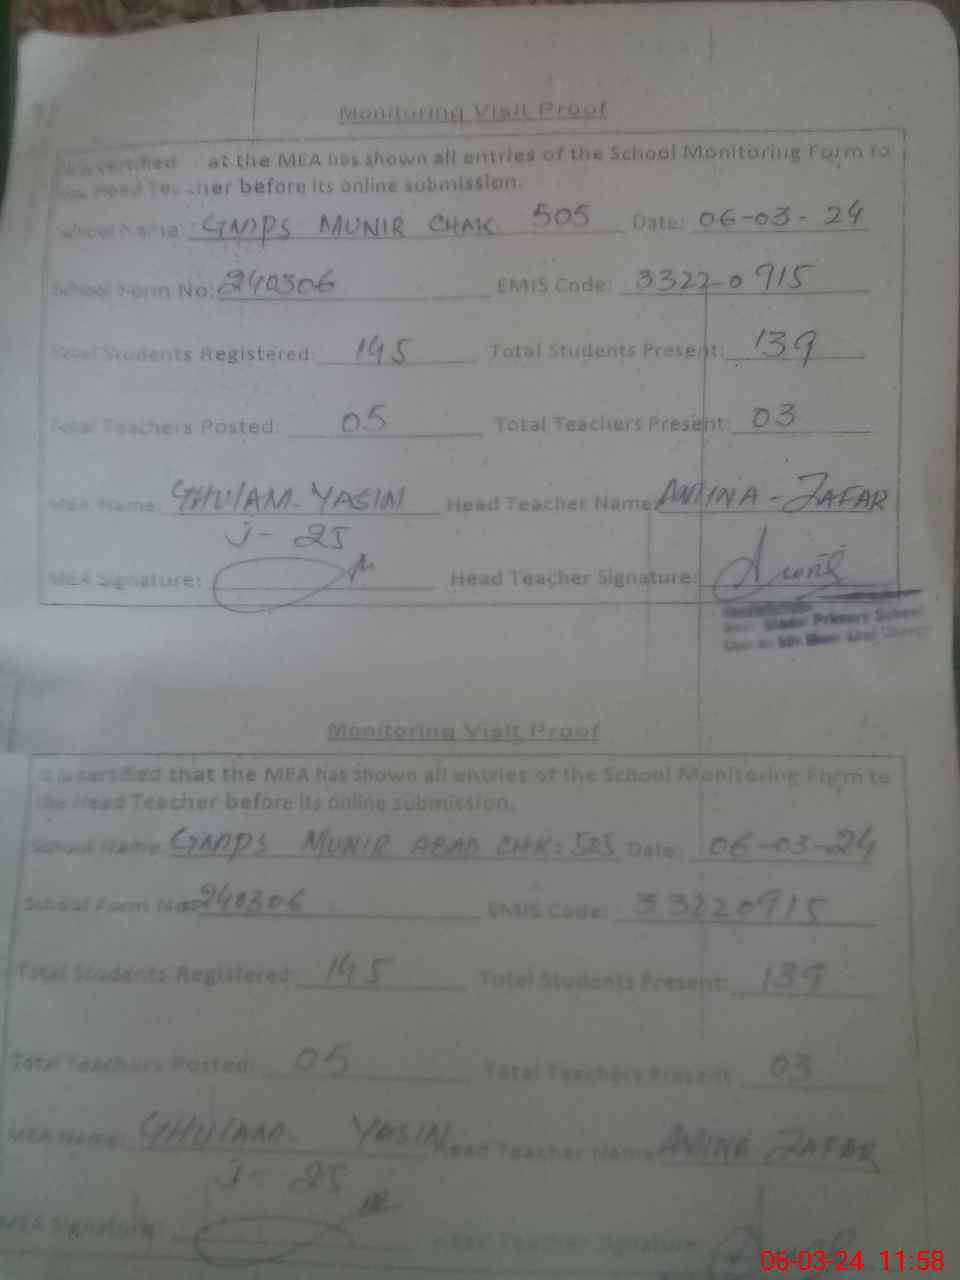 Monitoring Visit Proof
certified at the MEA has shown all entries of the School Monitoring Form to
the Head Teacher before its online submission.
School Name: GMPS MUNIR CHAK 505 Date: 06-03-24
School Form No: 240306 EMIS Code: 33220915
Total Students Registered: 145 Total Students Present: 139
Total Teachers Posted: 05 Total Teachers Present: 03
MEA Name: GHULAM YASIN Head Teacher Name: AMINA - ZAFAR
J- 25
MEA Signature: Head Teacher Signature:
Primary School
Monitoring Visit Proof
It is certified that the MEA has shown all entries of the School Monitoring Form to
the Head Teacher before its online submission.
School Name: GMPS MUNIR ABAD CHK: 505 Date: 06-03-24
School Form No: 240306 EMIS Code: 33220915
Total Students Registered: 145 Total Students Present: 139
Total Teachers Posted: 05 Total Teachers Present: 03
MEA Name: GHULAM YASIN Head Teacher Name: AMINA ZAFAR
J- 25
MEA Signature: Head Teacher Signature:
06-03-24 11:58